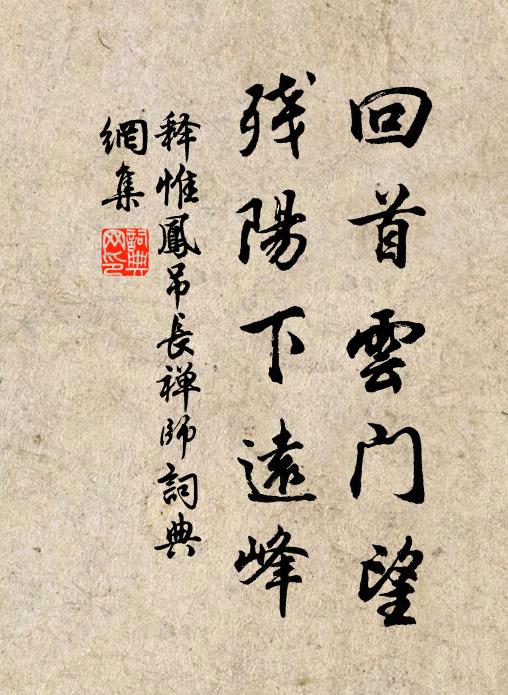 回首雲门望
残陽下遠峰
释惟鳳吊長禅師詞典
網集
詞典网印